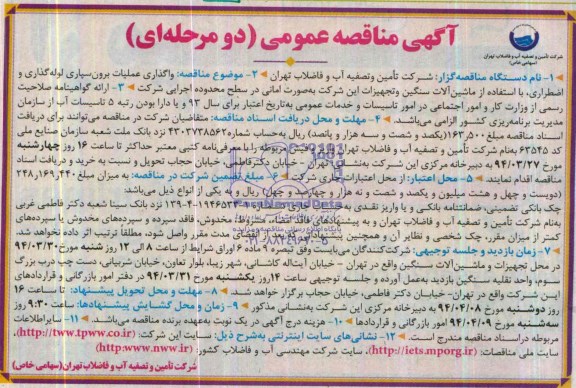 آگهی مناقصه عمومی (دو مرحله‌ای)
شرکت تأمین و تصفیه آب و فاضلاب تهران
(سهامی خاص)
۱- نام دستگاه مناقصه‌گزار: شرکت تأمین وتصفیه آب و فاضلاب تهران ۲- موضوع مناقصه: واگذاری عملیات برون‌سپاری لوله‌گذاری و
اضطراری، با استفاده از ماشین‌آلات سنگین وتجهیزات این شرکت به‌صورت امانی در سطح محدوده اجرایی شرکت ۳- ارائه گواهینامه صلاحیت
رسمی از وزارت کار و امور اجتماعی در امور تاسیسات و خدمات عمومی به‌تاریخ اعتبار برای سال ۹۳ و یا دارا بودن رتبه ۵ تاسیسات آب از سازمان
مدیریت برنامه‌ریزی کشور الزامی می‌باشد. ۴- مهلت و محل دریافت اسناد مناقصه: متقاضیان شرکت در مناقصه می‌توانند برای دریافت
اسناد مناقصه مبلغ ۱۶۳٫۵۰۰ (یکصد و شصت و سه هزار و پانصد) ریال به‌حساب شماره ۴۳۰۳۷۳۸۵۶۲ نزد بانک ملت شعبه سازمان صنایع ملی
کد ۶۳۵۴۵ به‌نام شرکت تأمین و تصفیه آب و فاضلاب مربوطه را با معرفی‌نامه کتبی معتبر حداکثر تا ساعت ۱۶ روز چهارشنبه
مورخ ۹۴/۰۳/۲۷ به دبیرخانه مرکزی این شرکت به‌نشانی تهران - خیابان دکترفاطمی، خیابان حجاب تحویل و نسبت به خرید و دریافت اسناد
مناقصه اقدام نمایند. ۵- محل اعتبار: از محل اعتبارات جاری شرکت ۶- مبلغ تضمین شرکت در مناقصه: به میزان مبلغ ۲۴۸٫۱۶۹٫۴۴۰
(دویست و چهل و هشت میلیون و یکصد و شصت و نه هزار و چهارصد و چهل) ریال و به یکی از انواع ذیل می‌باشد:
چک بانکی تضمینی، ضمانتنامه بانکی و یا واریز نقدی به نزد بانک سینا شعبه دکتر فاطمی غربی
به‌نام شرکت تأمین و تصفیه آب و فاضلاب تهران و به پیشنهادهای فاقد امضاء، مشروط، مخدوش، فاقد سپرده و سپرده‌های مخدوش یا سپرده‌های
کمتر از میزان مقرر، چک شخصی و نظایر آن و همچنین پیشنهاداتی که بعد از انقضای مدت مقرر واصل شود، مطلقاً ترتیب اثر داده نخواهد شد.
۷- زمان بازدید و جلسه توجیهی: شرکت‌کنندگان می‌بایست وفق تبصره ۹ ماده ۶ اوراق شرایط از ساعت ۸ الی ۱۲ روز شنبه مورخ ۹۴/۰۳/۳۰
در محل تجهیزات و ماشین‌آلات سنگین واقع در تهران - خیابان آیت‌اله کاشانی، شهر زیبا، بلوار تعاون، خیابان شربیانی، دست چپ درب بزرگ
سوم، واحد نقلیه سنگین بازدید به‌عمل آورده و جلسه توجیهی ساعت ۱۴ روز یکشنبه مورخ ۹۴/۰۳/۳۱ در دفتر امور بازرگانی و قراردادهای
این شرکت واقع در تهران- خیابان دکتر فاطمی، خیابان حجاب برگزار خواهد شد. ۸- مهلت و محل تحویل پیشنهاد: تا ساعت ۱۶
روز دوشنبه مورخ ۹۴/۰۴/۰۸ به دبیرخانه مرکزی این شرکت به‌نشانی مذکور ۹- زمان و محل گشایش پیشنهادها: ساعت ۹:۳۰ روز
سه‌شنبه مورخ ۹۴/۰۴/۰۹ امور بازرگانی و قراردادها ۱۰- هزینه درج آگهی در یک نوبت به‌عهده برنده مناقصه می‌باشد. ۱۱- سایراطلاعات
مربوطه دراسناد مناقصه مندرج است. ۱۲- نشانی‌های سایت اینترنتی به‌شرح ذیل: سایت این شرکت: (http://tww.tpww.co.ir)
سایت ملی مناقصات: (http://iets.mporg.ir)، سایت شرکت مهندسی آب و فاضلاب کشور: (http:www.nww.ir)
شرکت تأمین و تصفیه آب و فاضلاب تهران (سهامی خاص)